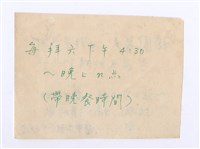 每拜六下午4:30
至晚上九点
(帶晚餐時間)